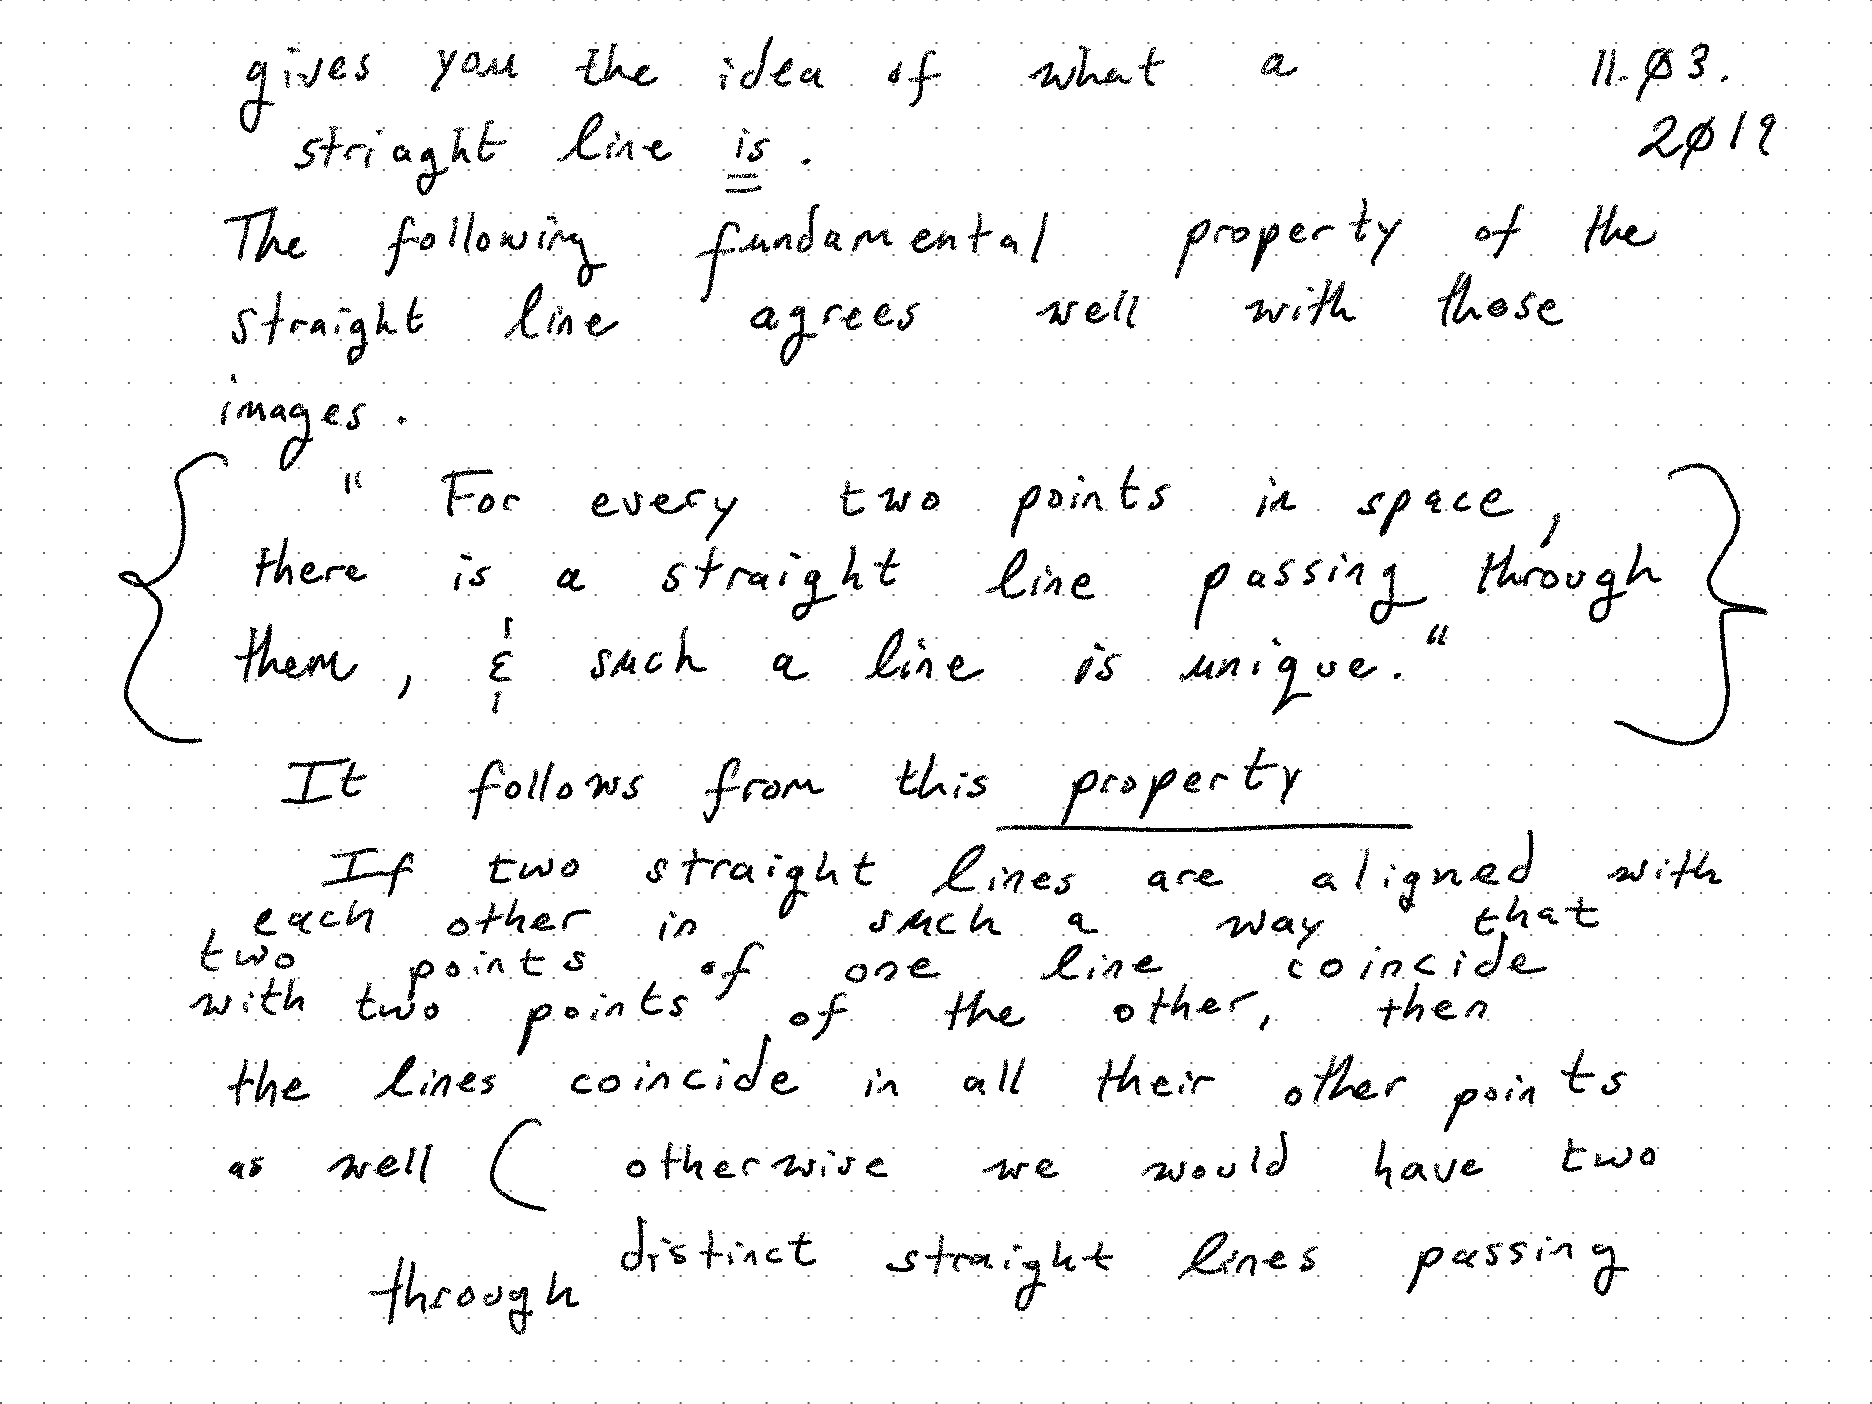 gives you the idea of what a 11.Ø3.
striaght line is. 2Ø19
The following fundamental property of the
straight line agrees well with those
images.
" For every two points in space,
there is a straight line passing through
them, & such a line is unique."
It follows from this property
If two straight lines are aligned with
each other in such a way that
two points of one line coincide
with two points of the other, then
the lines coincide in all their other points
as well ( otherwise we would have two
distinct straight lines passing
through